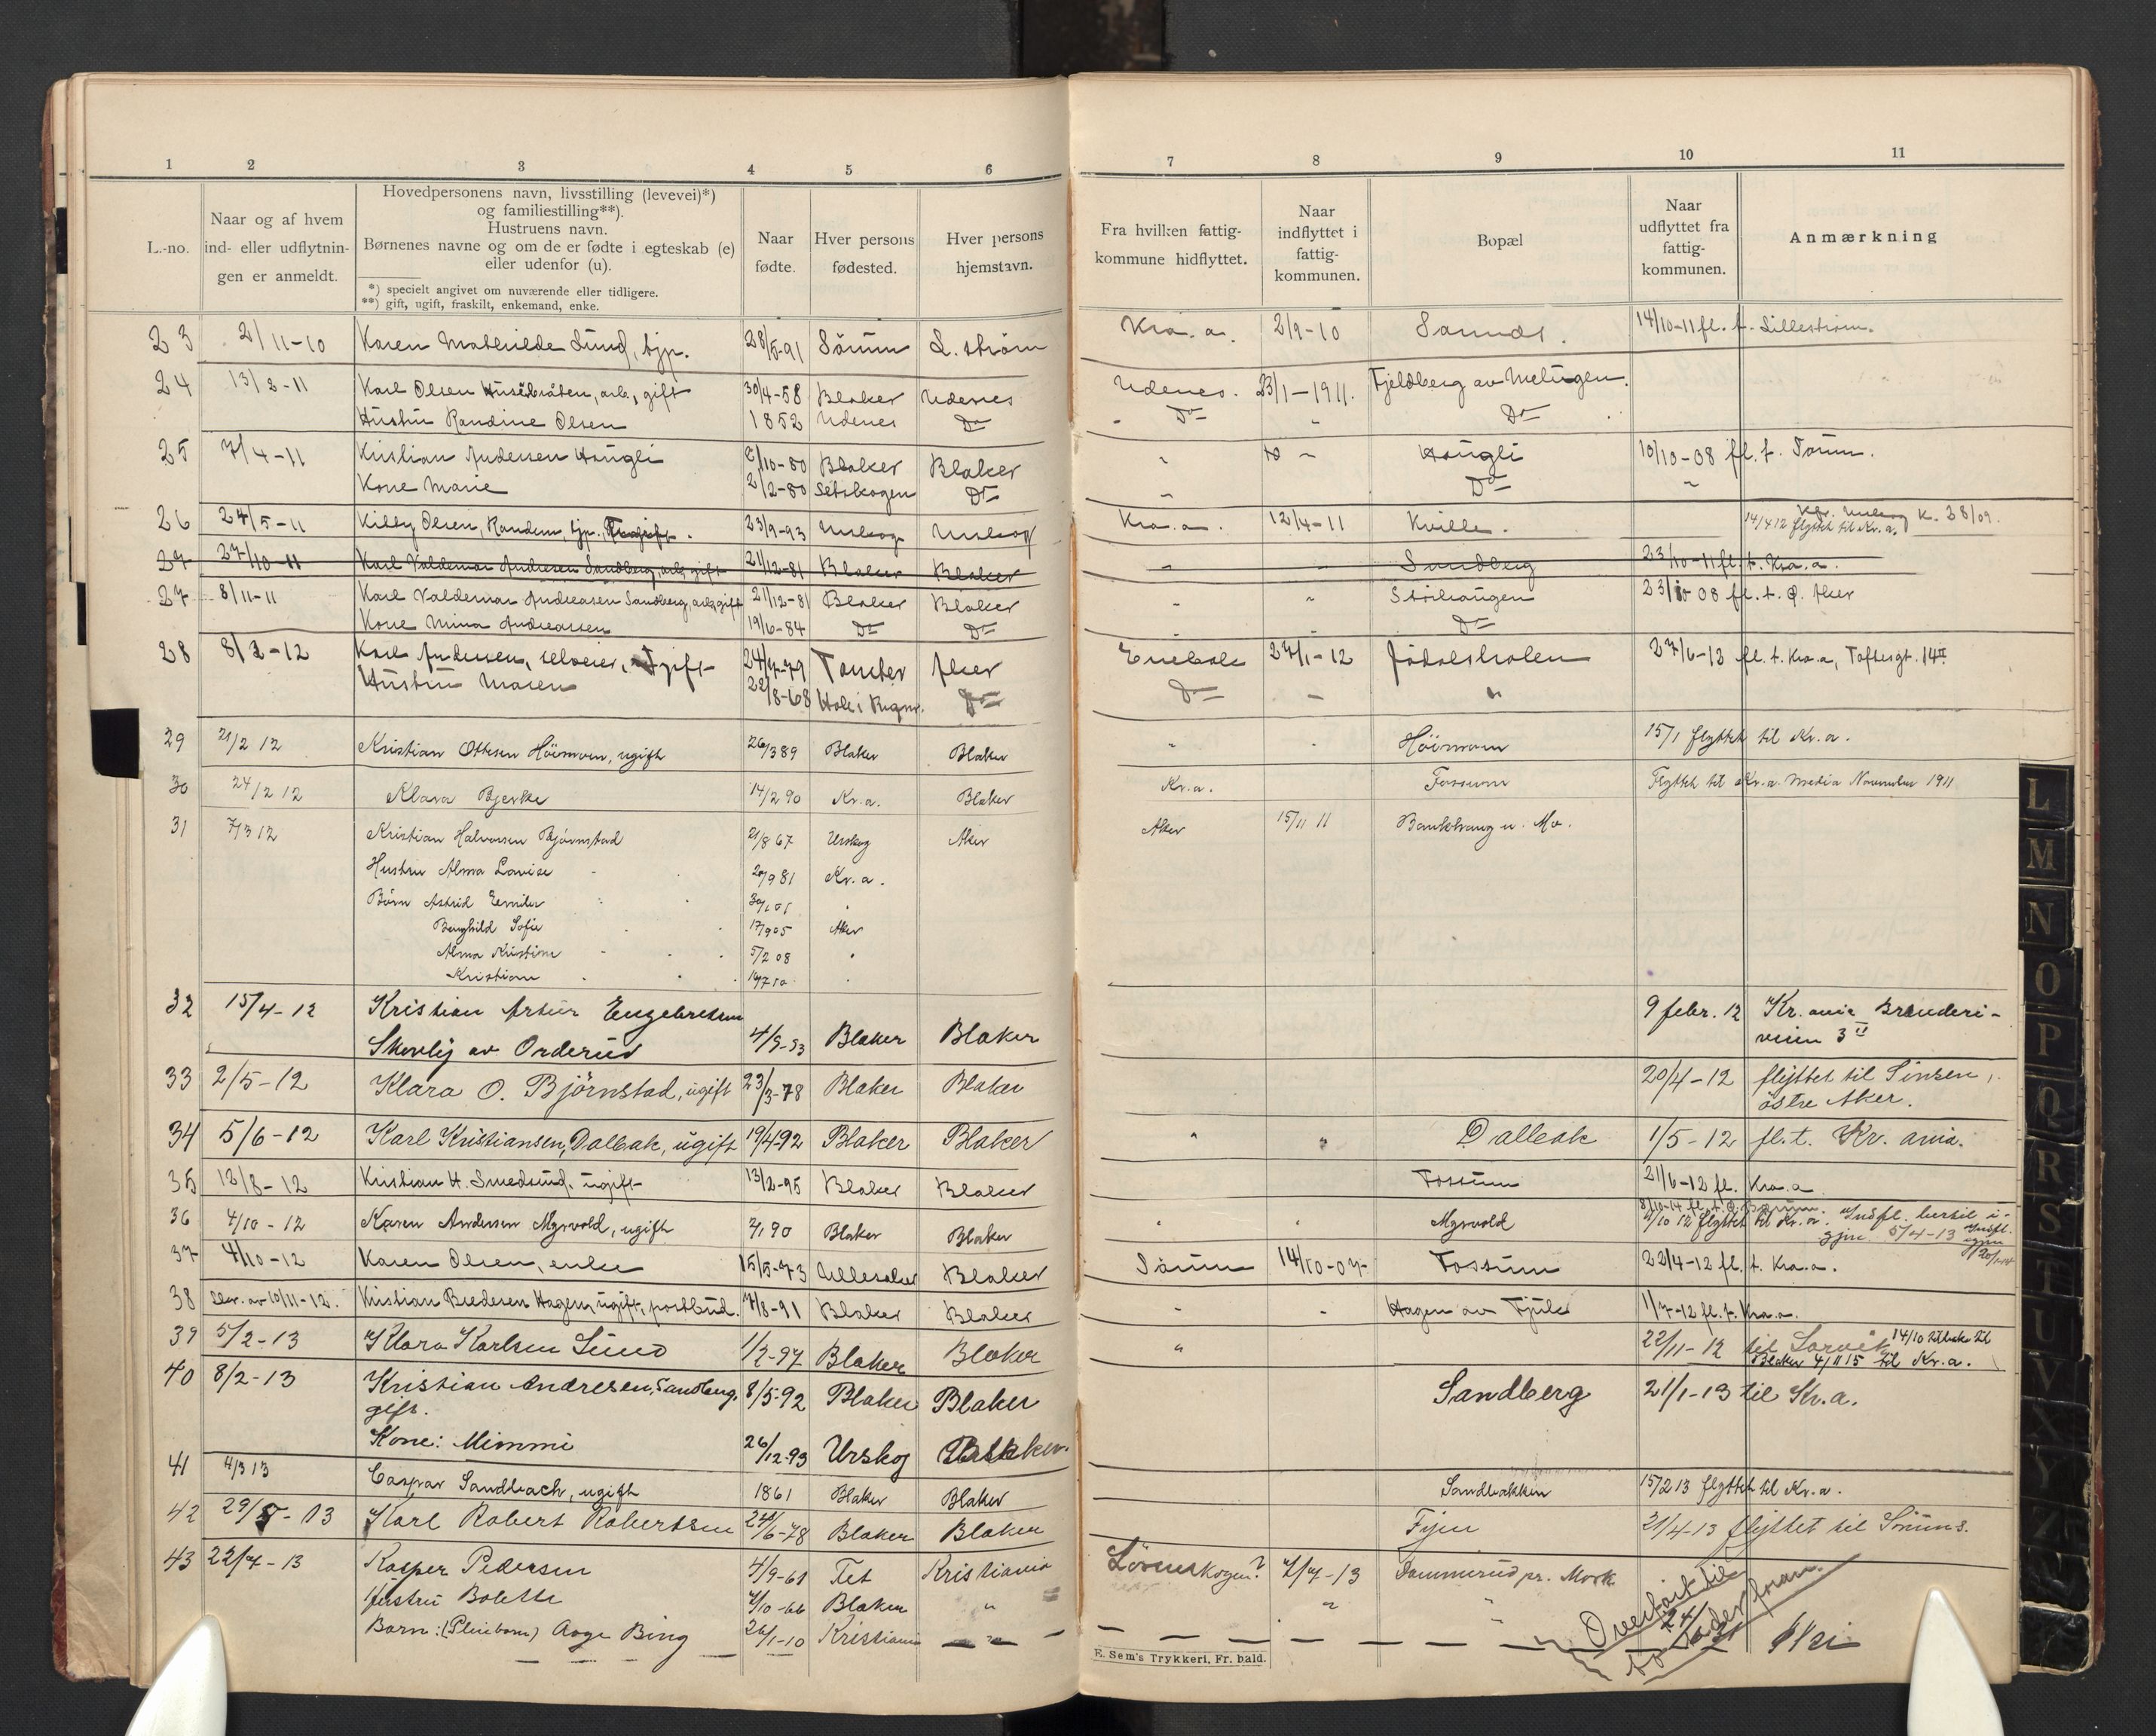 1 2 3 4 5 6 7 8 9 10 11
L.-no.
Naar og af hvem
ind- eller udflytnin-
gen er anmeldt.
Hovedpersonens navn, livsstilling (levevei)*)
og familiestilling**).
Hustruens navn.
Børnenes navne og om de er fødte i egteskab (e)
eller udenfor (u).
*) specielt angivet om nuværende eller tidligere.
**) gift, ugift, fraskilt, enkemand, enke.
Naar
fødte.
Hver persons
fødested.
Hver persons
hjemstavn.
Fra hvilken fattig-
kommune hidflyttet.
Naar
indflyttet i
fattig-
kommunen.
Bopæl
Naar
udflyttet fra
fattig-
kommunen.
Anmærkning
23 2/11-10 Karen Mathilde Lund, tjp. 28/5-91 Sörum L. ström Kra.a. 2/9-10 Sannds. 14/10-11 fl. t. Lilleström.
24 13/2-11 Karl Olsen Husebråten, arb., gift 30/4-58 Blaker Udenes Udenes. 23/1-1911. Fjeldberg av Melingen.
Hustru Randine Olsen 1852 Udenes Do Do " Do
25 7/4-11 Kristian Andersen Haugli 2/10-80 Blaker Blaker " Haugli 10/10-08 fl. t. Sörum.
Kone Marie 2/2-80 Setskogen Do " Do "
26 24/5-11 Kilby Olsen, Randem, tjp. 23/9-93 Urskog Urskog Kra.a. 12/4-11 Kville. 14/4 12 flyttet til Kr.a. Kfr. Urskog K. 28/09.
27 27/10-11 Karl Valdemar Andresen Sandberg, arb, gift 21/12-81 Blaker Blaker " " Sandberg 23/10-11 fl. t. Kra.a.
27 8/11-11 Karl Valdemar Andreasen Sandberg, arb, gift 21/12-81 Blaker Blaker " " Storhaugen 23/10 08 fl. t. Ø. Aker
Kone Mina Andreassen 19/6-84 Do Do Do
28 8/2-12 Karl Andersen, selveier, gift 24/4-79 Tomter Aker Enebak 27/1-12 Jödalsholen 27/6-12 fl. t. Kra.a, Toftesgt. 14II
Hustru Maren 22/8-68 Hole i Ringer. Do Do " "
29 21/2 12 Kristian Ottesen Höimoen, ugift 26/3 89 Blaker Blaker " " Höimoen 15/1 flyttet til Kr.a.
30 24/2 12 Klara Bjerke 14/2 90 Kr.a. Blaker Kr.a. Fossum Flyttet til Kr.a. media November 1911
31 7/3 12 Kristian Halvorsen Björnstad 21/8 67 Urskog Aker Aker 15/11 11 Bankhaug u. Mo.
Hustru Alma Lovise 20/9 81 Kr.a.
Börn Astrid Emilie 30/1 01 "
Borghild Sofie 17/9 05 Aker
Alma Kristine 5/2 08 "
Kristian 14/7 10
32 15/4-12 Kristian Artur Engebretsen 9 febr. 12 Kr.ania Brenderi-
Skovly av Orderud 4/9-93 Blaker Blaker veien 3II
33 2/5-12 Klara O. Björnstad, ugift 23/3-78 Blaker Blaker 20/4-12 flyttet til Sinsen,
östre Aker.
34 5/6-12 Karl Kristiansen, Dalbak, ugift 19/4-92 Blaker Blaker " " Dalbak 1/5-12 fl.t. Kr.ania.
35 12/8-12 Kristian H. Smedsrud, ugift 13/2-95 Blaker Blaker Fossum 21/6-12 fl. Kra.a
36 4/10-12 Karen Andersen Myrvold, ugift 7/1 90 Blaker Blaker " " Myrvold 4/10 12 flyttet til Kr.a. Indfl. hertil i-
gjen 5/4-13
37 4/10-12 Karen Olsen, enke 15/5-73 Ullensaker Blaker Sörum 14/10-07 Fossum 22/4-12 fl. t. Kra.a.
38 Skr. av 10/11-12. Kristian Bredesen Hagen, ugift, postbud. 7/8-91 Blaker Blaker " " Hagen av Fjuk 1/7-12 fl. t. Kra.a.
39 5/2-13 Klara Karlsen Lund 1/2-97 Blaker Blaker " 22/11-12 til Larvik 14/10 tilbake til
Blaker 4/11 15 til Kr.a.
40 8/2-13 Kristian Andresen, Sandberg, 8/5-92 Blaker Blaker Sandberg 21/1-13 til Kr.a.
gift.
Kone: Mimmi 26/12-93 Urskog Blaker.
41 4/3 13 Caspar Sandbach, ugift 1861 Blaker Blaker Sandbakken 15/2 13 flyttet til Kr.a.
42 29/5-13 Karl Robert Robertsen 24/6-78 Blaker Blaker Fijen 21/4-13 flyttet til Sörums.
43 22/7-13 Kasper Pedersen 4/9-61 Fet Kristiania Lörenskogen? 4/7-13 Dammerud pr. Mork
Hustru Bolette 4/10-66 Blaker " " "
Barn: (Pleiebarn) Aage Bing 26/1-10 Kristiania "
Overfört til
24/
foran.
E. Sem's Trykkeri, Fr. hald.
L
M
N
O
P
Q
R
S
T
U
V
X
Y
Z